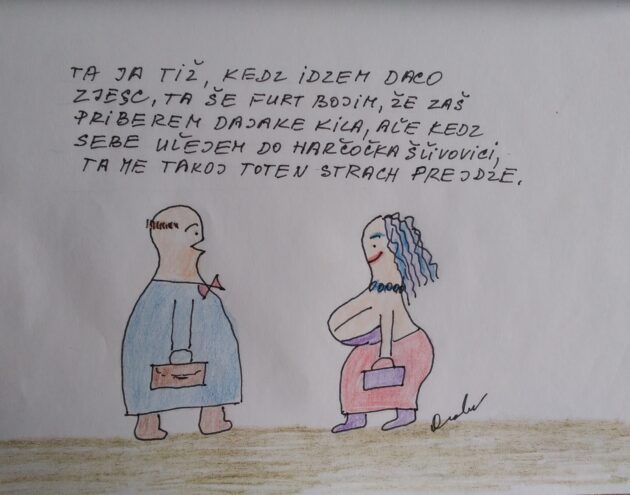 TA JA TIŽ, KEDZ IDZEM DACO
ZJESC, TA ŠE FURT BOJIM, ŽE ZAŠ
PRIBEREM DAJAKE KILA, AĽE KEDZ
SEBE UĽEJEM DO HARČOČKA ŠĽIVOVICI,
TA ME TAKOJ TOTEN STRACH PREJDZE.